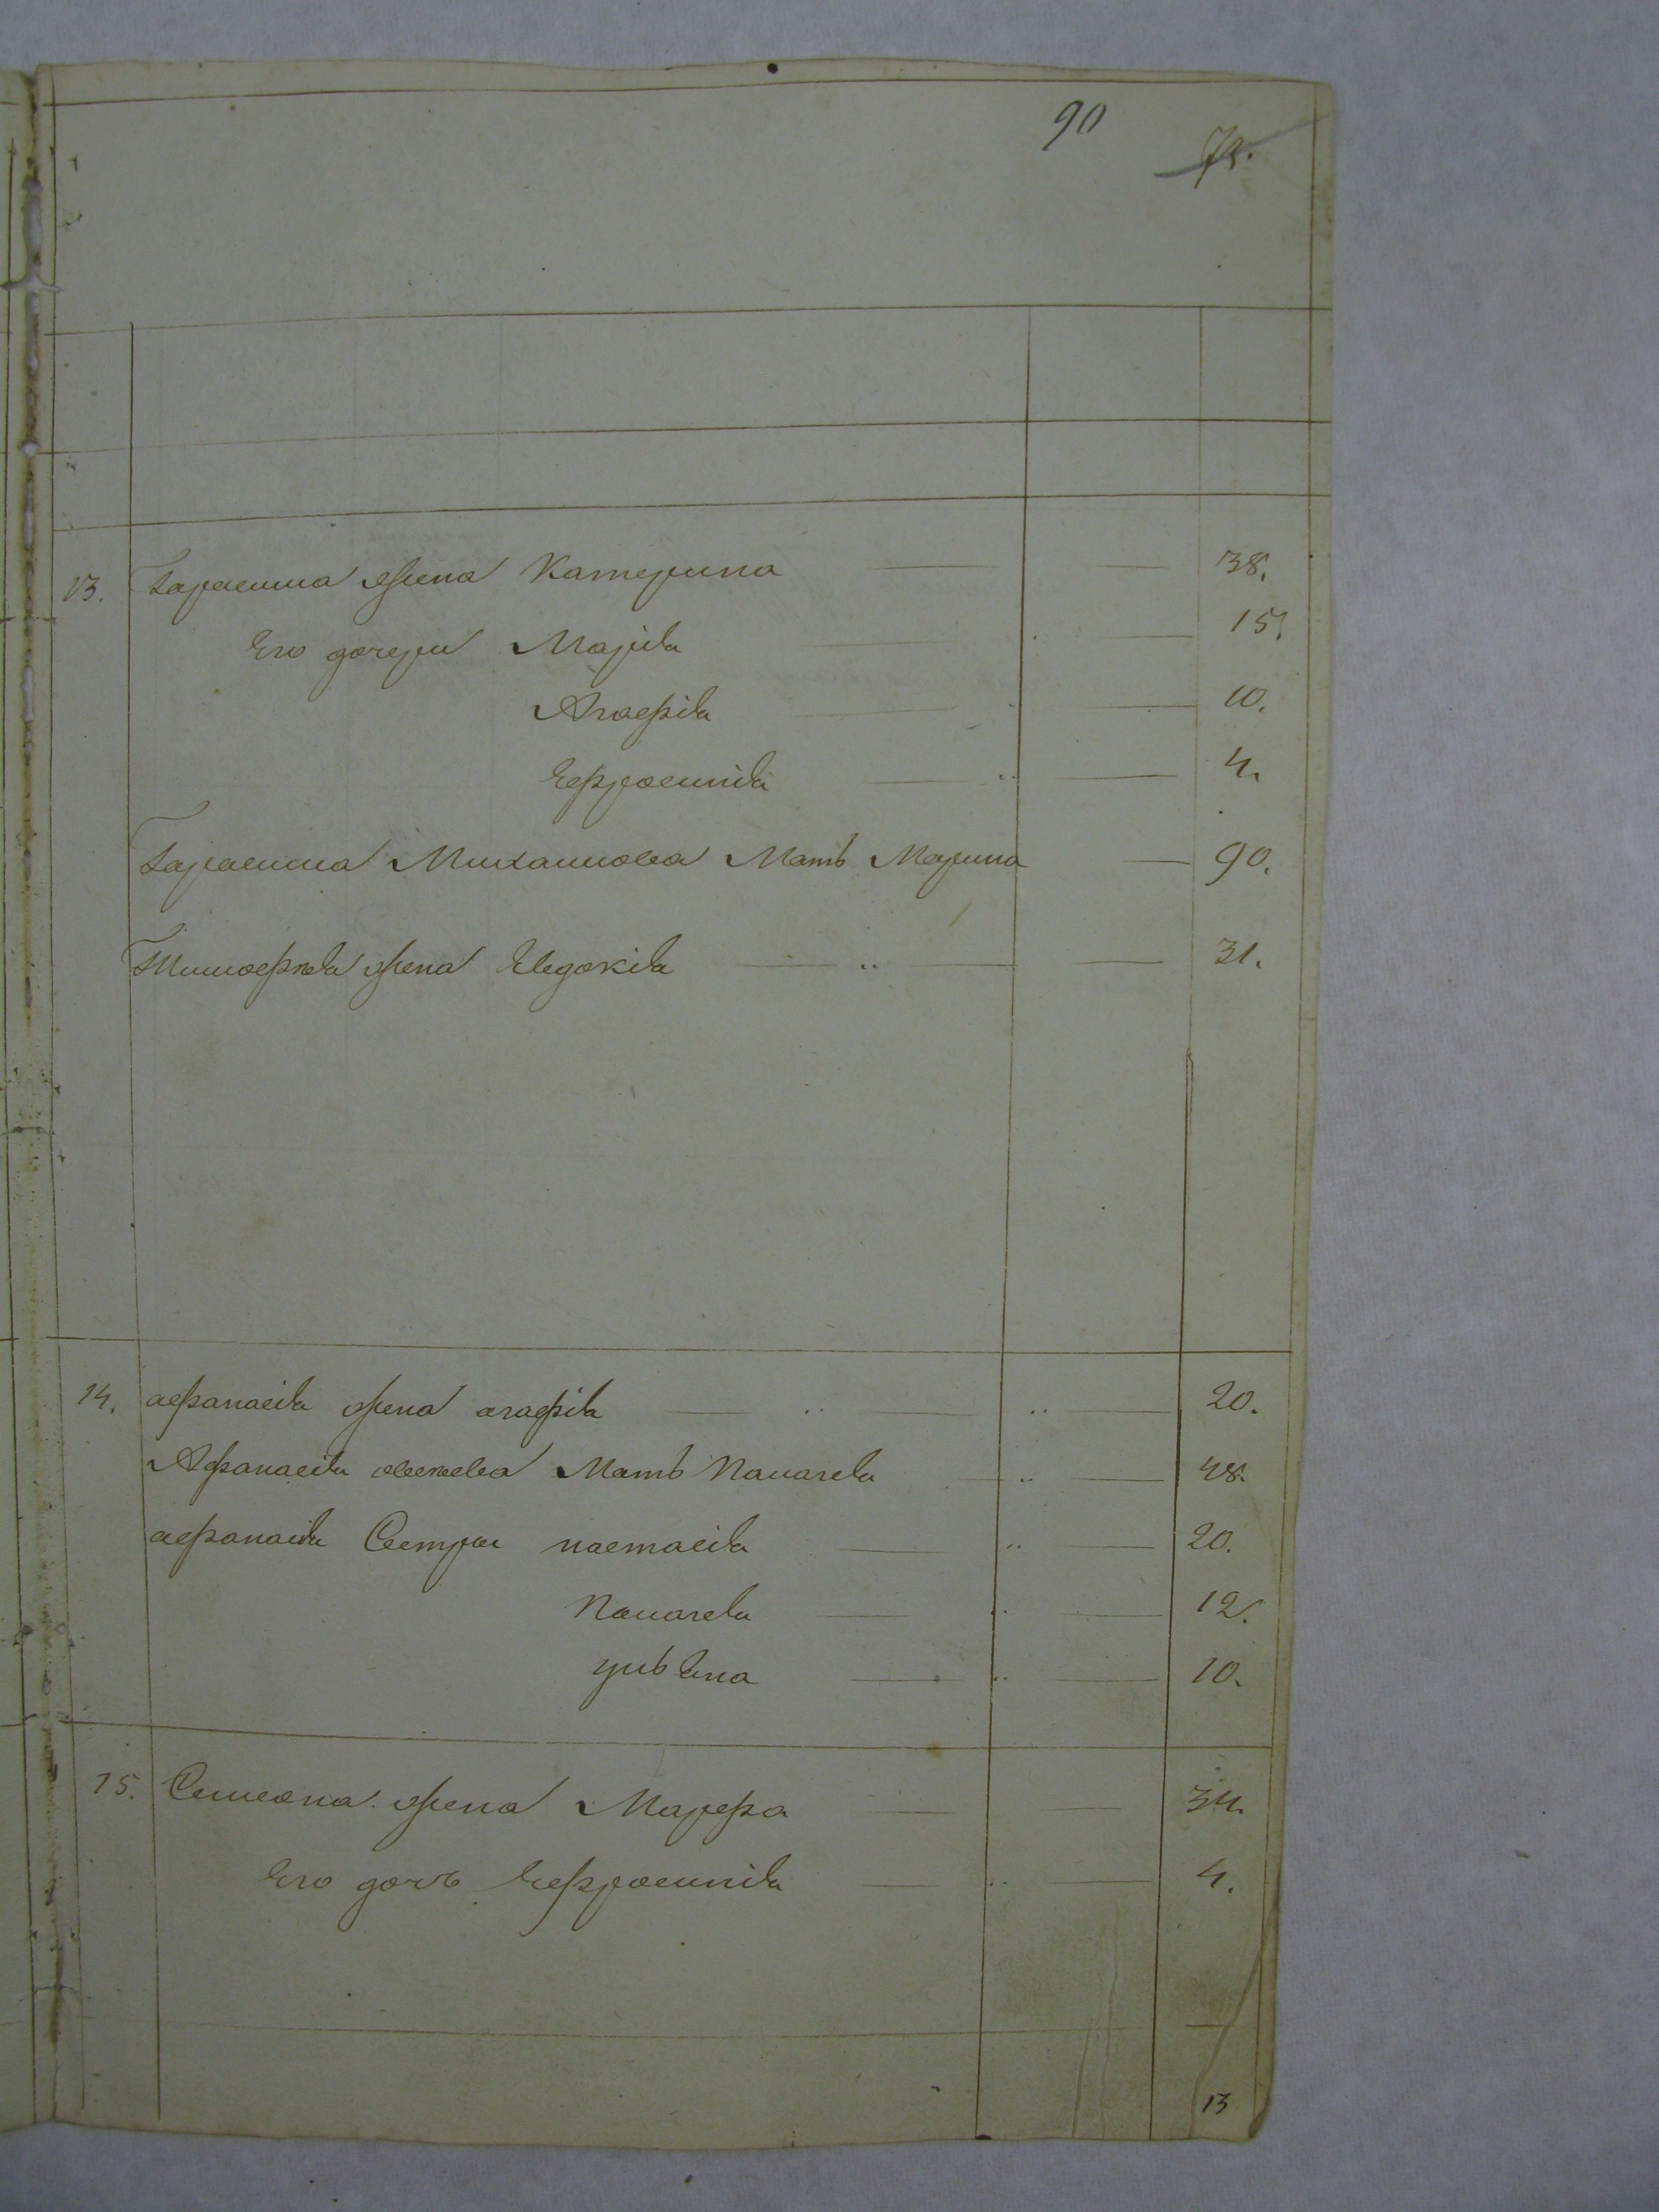 90
13. Герасима жена Катерина 38.
Его дочери Марія 15.
Агафія 10.
Ефросинія 4.
Герасима Михайлова Мать Марина 90.
Тимофѣя жена Евдокія 31.
14. афанасія жена агафія 20.
Афанасія Мать Палагея 48.
афанасія Сестры настасія 20.
Палагея 12.
ульяна 10.
15. Симеона жена Марфа 34.
Его дочь Ефросинія 4.
13